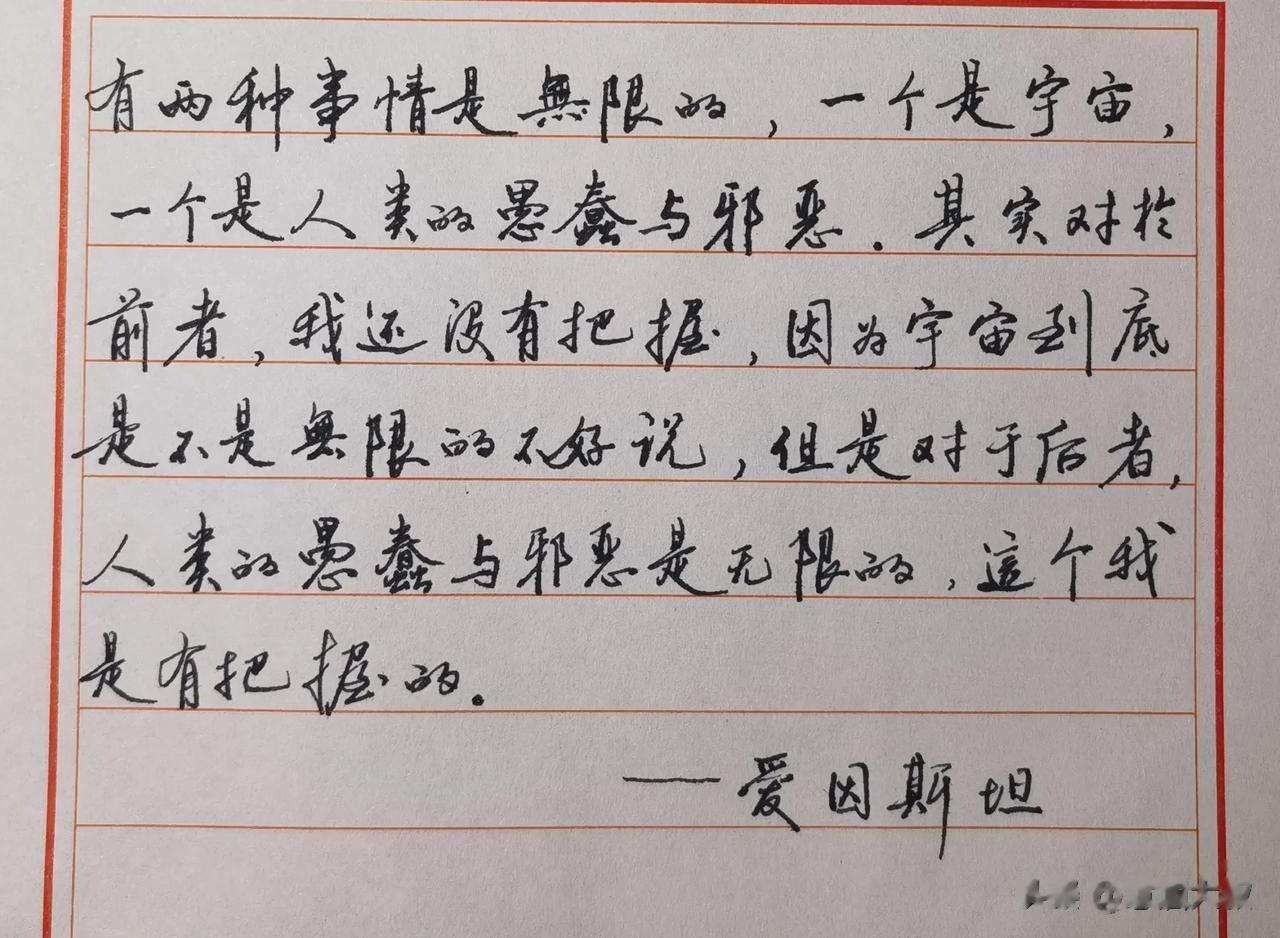 有两种事情是無限的，一个是宇宙，
一个是人类的愚蠢与邪恶．其实对於
前者，我还没有把握，因为宇宙到底
是不是無限的不好说，但是对于后者，
人类的愚蠢与邪恶是无限的，這个我
是有把握的。
——爱因斯坦
头条